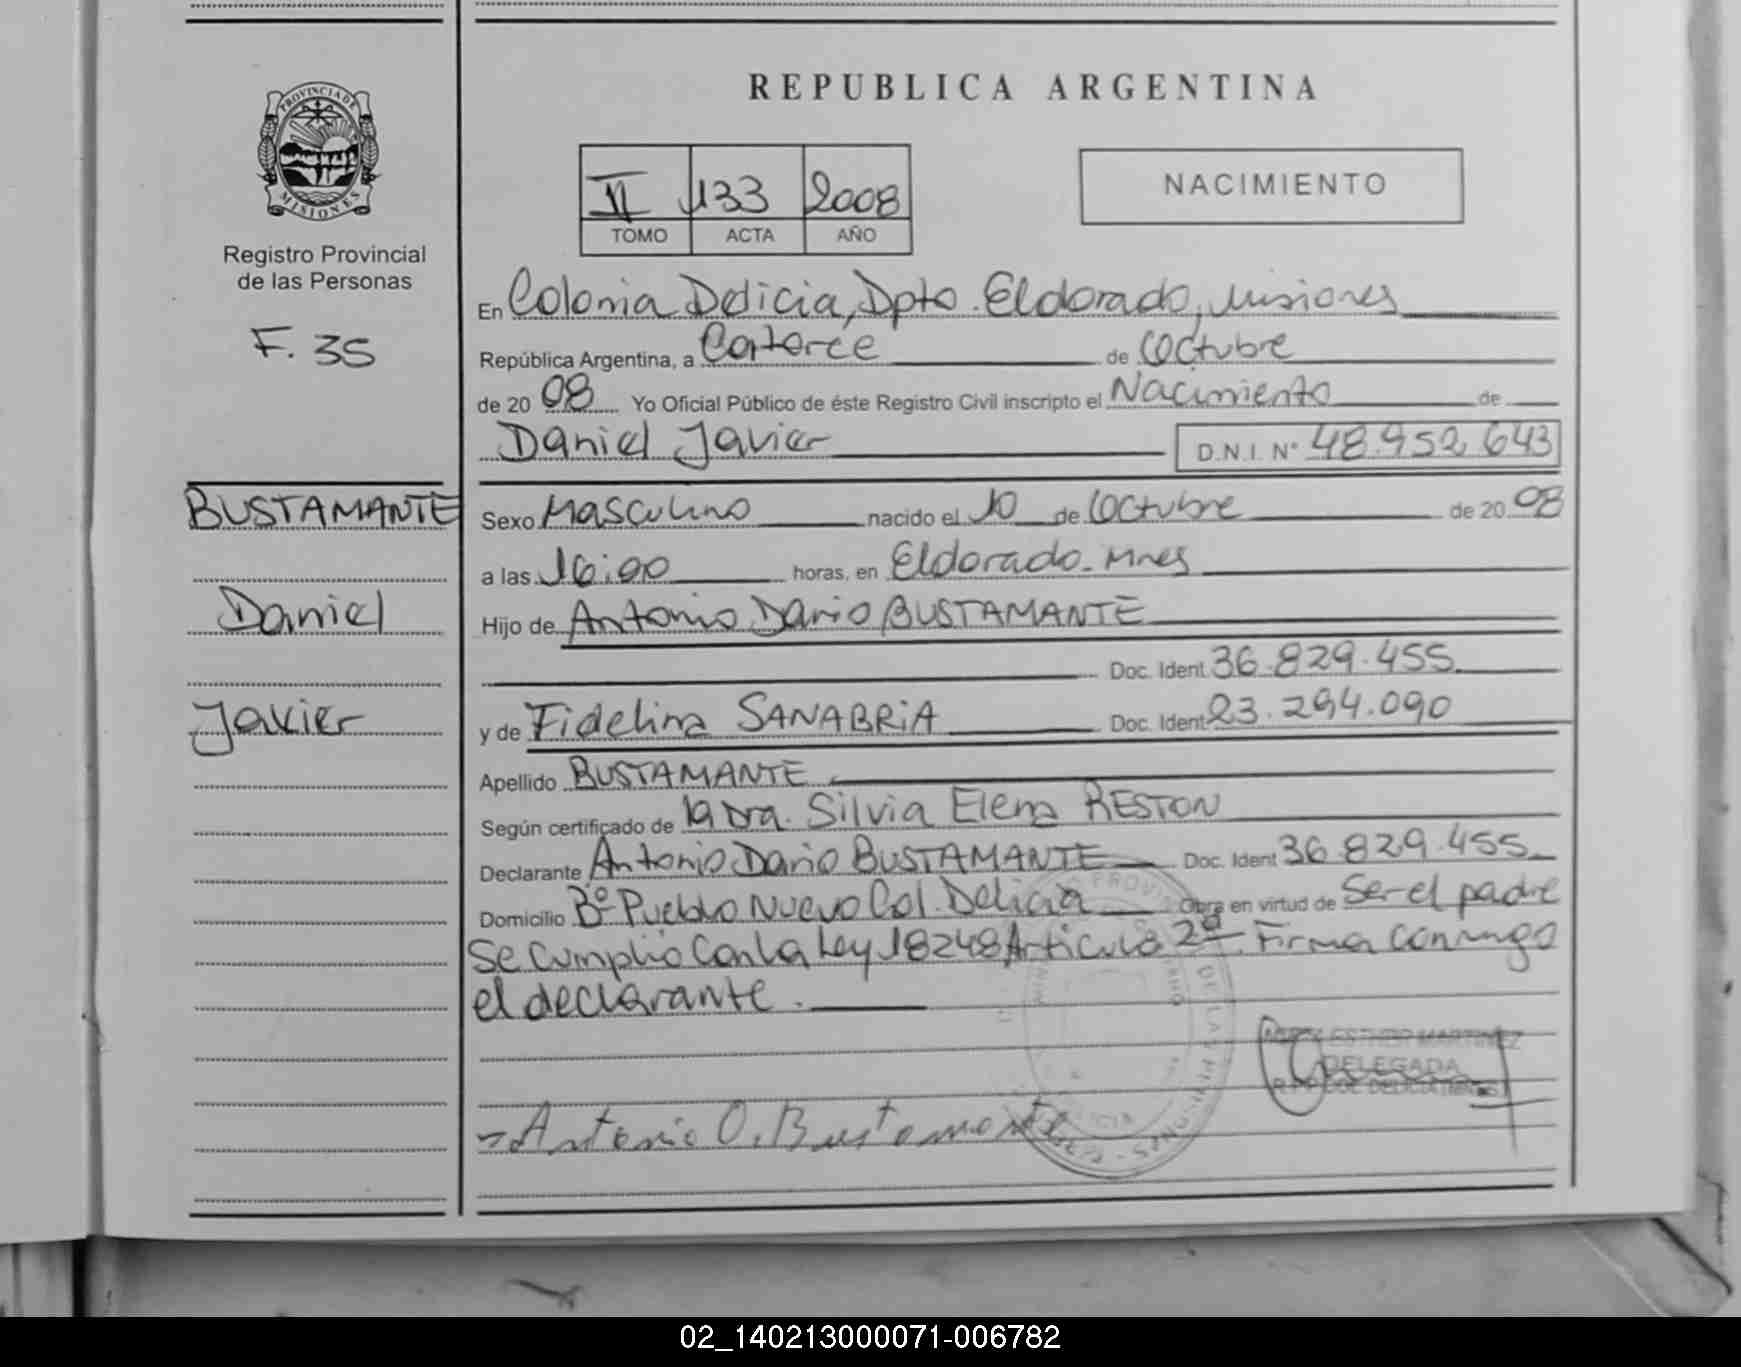 REPUBLICA ARGENTINA
PROVINCIA DE
MISIONES
Registro Provincial
de las Personas
F. 35
II 133 2008
TOMO ACTA AÑO
NACIMIENTO
En Colonia Delicia, Dpto. Eldorado, Misiones
República Argentina, a Catorce de Octubre
de 20 08 Yo Oficial Público de éste Registro Civil inscripto el Nacimiento de
Daniel Javier D.N.I. Nº 48.952.643
BUSTAMANTE
Daniel
Javier
Sexo Masculino nacido el 10 de Octubre de 20 08
a las 16:00 horas, en Eldorado - Mnes
Hijo de Antonio Dario BUSTAMANTE
Doc. Ident 36.829.455
y de Fidelina SANABRiA Doc. Ident 23.294.090
Apellido BUSTAMANTE
Según certificado de la Dra. Silvia Elena RESTON
Declarante Antonio Dario BUSTAMANTE Doc. Ident 36.829.455
Domicilio Bº Pueblo Nuevo Col. Delicia Obra en virtud de Ser el padre
Se Cumplió Con la Ley 18248 Articulo 2º Firma Conmigo
el declarante.
ESTHER MARTINEZ
DELEGADA
Antonio D. Bustamante
02_140213000071-006782